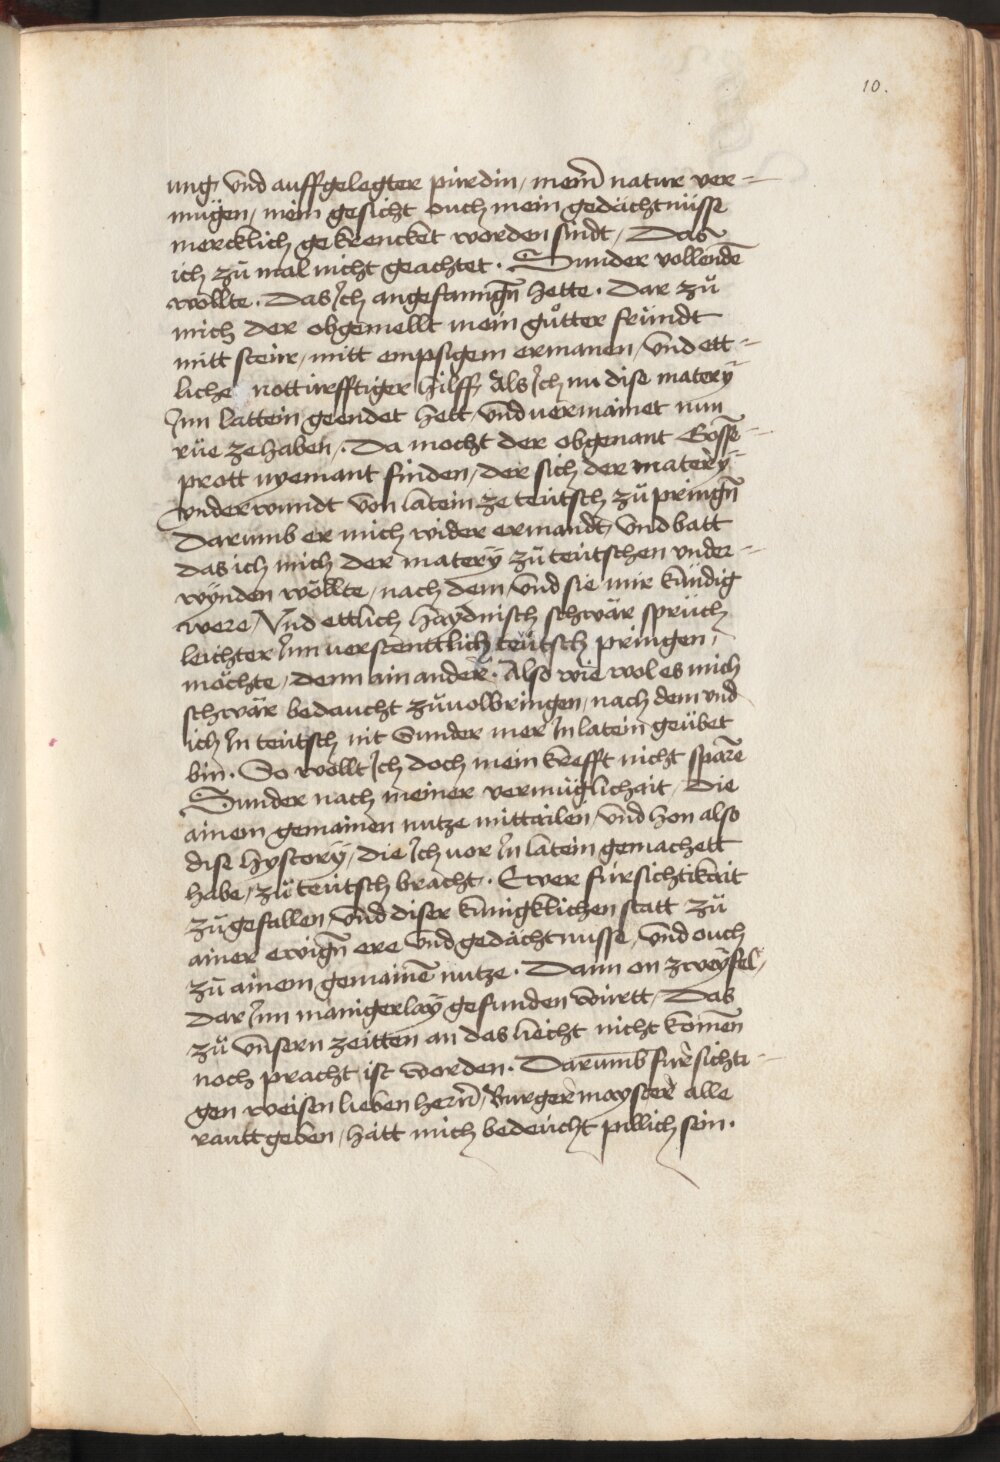 10.
ung vnd auffgelegter pürdin / meinẽ natur ver=
mügen / mein gesicht ouch mein gedächtnüsse
mercklich gekrencket worden sindt / Das
ich zů mal nicht geachtet · Sunder vollendẽ
wöllte · Das Ich angefanngñ hette · Dar zů
mich der obgemellt mein gůtter fründt
mitt steür / mitt empsigem ermanen / vnd ett=
liche nottürfftiger hilff / Als Ich nu dise matery
Inn lattein geendet hett / vnd vermainet nun
rüe ze haben / · Da mocht der obgenant Gosse=
prott nyemant finden / der sich der matery
vnderwundt von latein ze teütsch zů pringñ
Darumb er mich wider ermandt / vnd batt
das ich mich der matery zů teütschen vnder=
wynden wöllte / nach dem / vnd sie mir kündig
were / Vnd ettlich haydnisch schwär sprüch
leichter Inn verstenttlich teütsch pringen
möchte / denn ain ander · Also wie wol es mich
schwär bedaucht zů uolbringen / nach dem vnd
ich In teütsch nit Sunder mer In latein geübet
bin · So wöllt Ich doch mein krefft nicht sparẽ
Sunder nach meiner vermüglichait / Die
ainem gemainen nutze mittailen / vnd hon also
dise hystory / die Ich vor In latein gemachett
habe / zů teütsch bracht · Ewer fürsichtikait
zů gefallen / vnd diser künigklichen statt zů
ainer ewigñ ere vnd gedächtnusse / vnd ouch
zů ainem gemainẽ nutze · Dann on zweyfel /
dar Inn manigerlay gefunden württ / Das
zů vnsern zeitten an das liecht nicht komẽn
noch pracht ist worden · Darumb fürsichti=
gen weisen lieben herrñ / Burgermayster alle
rautt geben / hatt mich bedeücht pillich sein ·